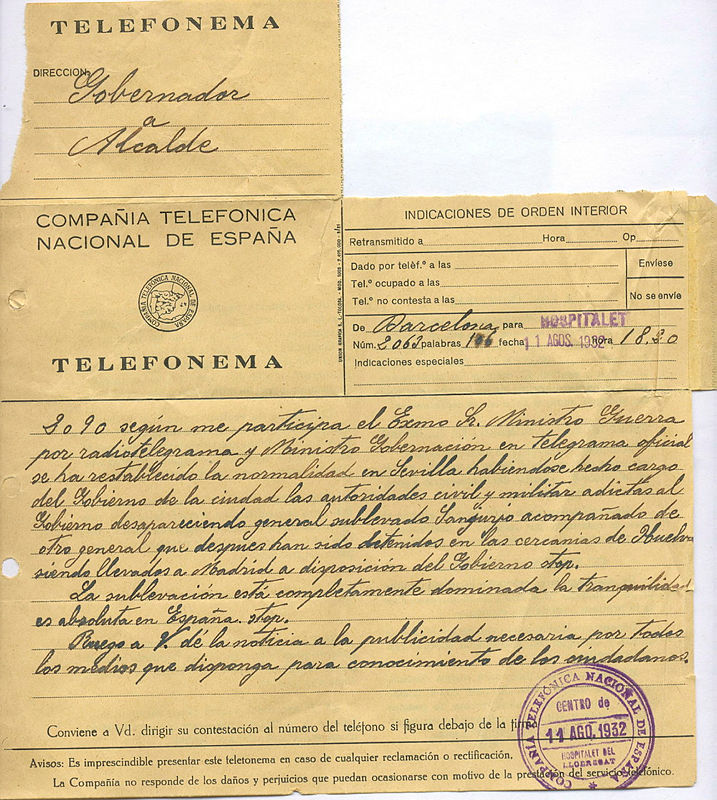 TELEFONEMA
DIRECCION
Gobernador
a
Alcalde
COMPAÑIA TELEFONICA
NACIONAL DE ESPAÑA
COMPAÑIA TELEFONICA NACIONAL DE ESPAÑA
TELEFONEMA
INDICACIONES DE ORDEN INTERIOR
Retransmitido a Hora Op
Dado por teléf.º a las
Tel.º ocupado a las
Tel.º no contesta a las
Envíese
No se envíe
De Barcelona para HOSPITALET
Núm. 2062 palabras 106 fecha 11 AGOS. 1932 hora 18.30
Indicaciones especiales
2090 según me participa el Exmo Sr. Ministro Guerra
por radiotelegrama y Ministro Gobernación en telegrama oficial
se ha restablecido la normalidad en Sevilla habiéndose hecho cargo
del Gobierno de la ciudad las autoridades civil y militar adictas al
Gobierno desapareciendo general sublevado Sangurjo acompañado de
otro general que despues han sido detenidos en las cercanias de Huelva
siendo llevados a Madrid a disposición del Gobierno stop.
La sublevación está completamente dominada la tranquilidad
es absoluta en España. stop.
Ruego a V. dé la noticia a la publicidad necesaria por todos
los medios que disponga para conocimiento de los ciudadanos.
Conviene a Vd. dirigir su contestación al número del teléfono si figura debajo de la firma
COMPAÑIA TELEFÓNICA NACIONAL DE ESPAÑA
CENTRO de
11 AGO. 1932
HOSPITALET DEL
LLOBREGAT
Avisos: Es imprescindible presentar este teletonema en caso de cualquier reclamación o rectificación.
La Compañía no responde de los daños y perjuicios que puedan ocasionarse con motivo de la prestación del servicio telefónico.